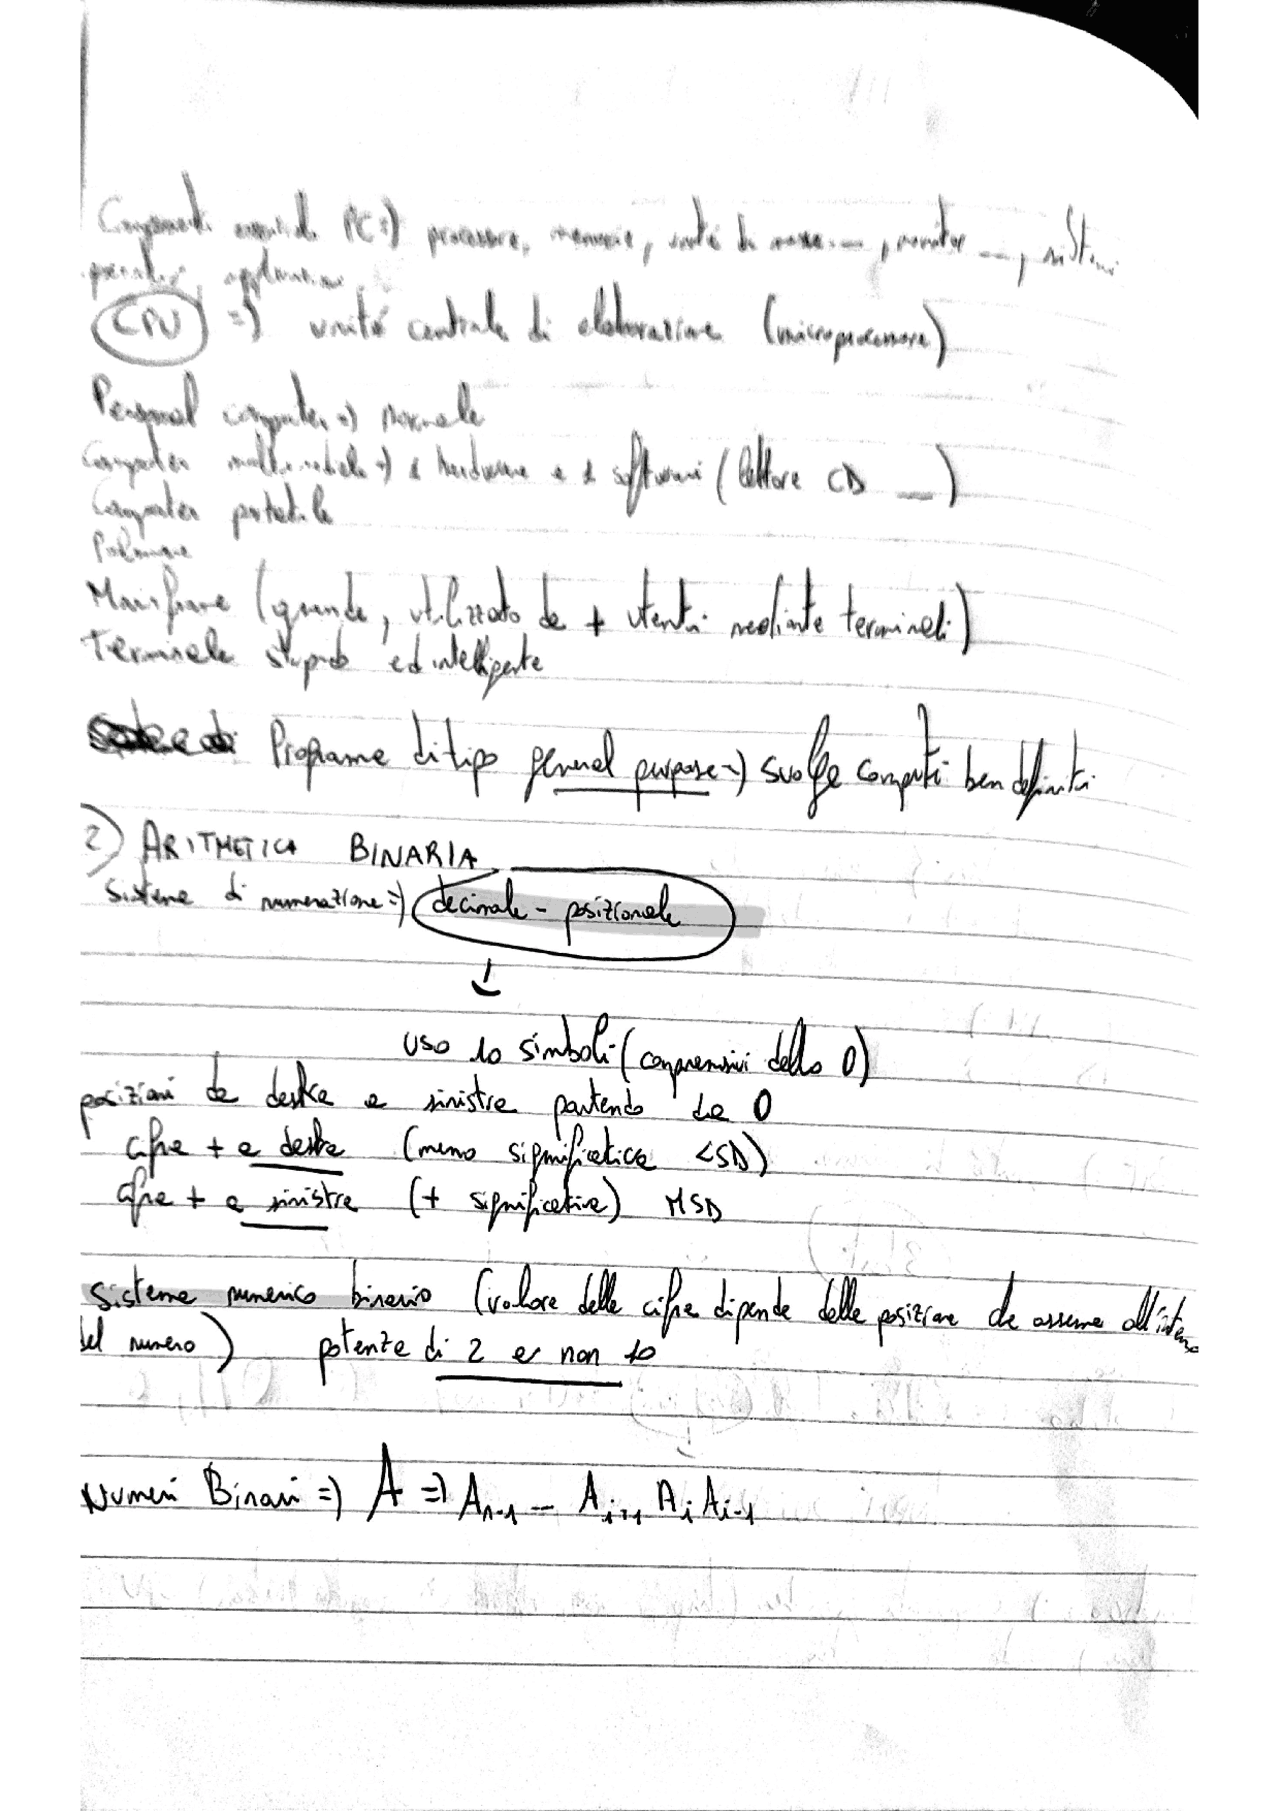 Componenti essenziali PC => processore, memoria, unità di massa ..., monitor ..., sistemi
operativi, applicativi
CPU => unità centrale di elaborazione (microprocessore)
Personal computer => normale
Computer multimediale => hardware e software (lettore CD ...)
Computer portatile
Palmare
Mainframe (grande, utilizzato da + utenti mediante terminali)
Terminale stupido ed intelligente
Programma di tipo general purpose => svolge compiti ben definiti
2) ARITMETICA BINARIA
sistema di numerazione => decimale - posizionale
uso 10 simboli (comprensivi dello 0)
posizioni da destra a sinistra partendo da 0
cifra + a destra (meno significativa LSD)
cifra + a sinistra (+ significativa) MSD
Sistema numerico binario (valore delle cifre dipende dalla posizione che assume all'interno
del numero) potenze di 2 e non 10
Numeri Binari => A => An-1 ... Ai+1 Ai Ai-1